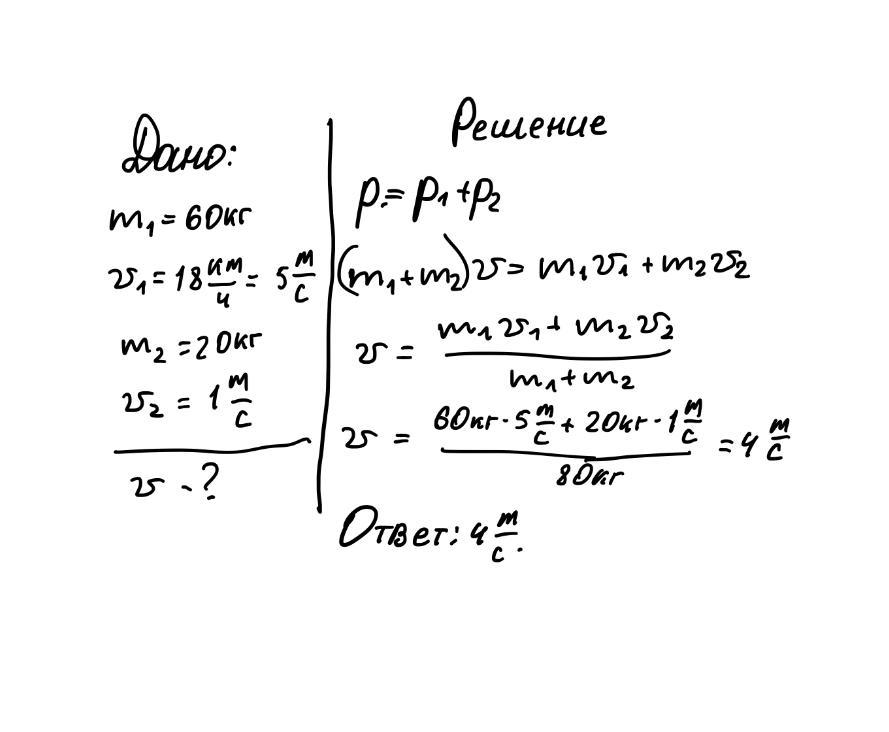 Дано:
m₁ = 60кг
v₁ = 18 км/ч = 5 м/с
m₂ = 20кг
v₂ = 1 м/с
v - ?
Решение
p = p₁ + p₂
(m₁ + m₂)v = m₁v₁ + m₂v₂
v = (m₁v₁ + m₂v₂)/(m₁ + m₂)
v = (60кг · 5 м/с + 20кг · 1 м/с)/80кг = 4 м/с
Ответ: 4 м/с.